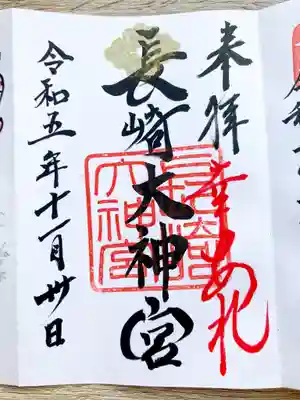 奉拝
幸あれ
長崎大神宮
長崎大神宮
令和五年十一月卅日
令和